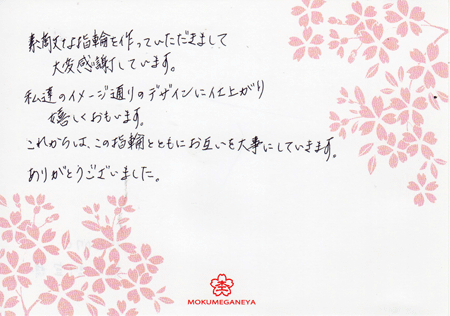 素敵な指輪を作っていただきまして
大変感謝しています。
私達のイメージ通りのデザインに仕上がり
嬉しくおもいます。
これからは、この指輪とともにお互いを大事にしていきます。
ありがとうございました。
MOKUMEGANEYA